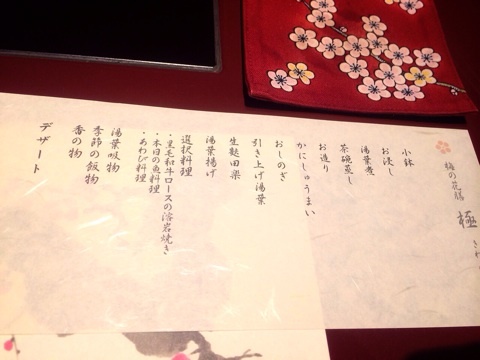 梅の花膳
極
きわ
小鉢
お浸し
湯葉煮
茶碗蒸し
お造り
かにしゅうまい
おしのぎ
引き上げ湯葉
生麩田楽
湯葉揚げ
選択料理
・黒毛和牛ロースの溶岩焼き
・本日の魚料理
・あわび料理
湯葉吸物
季節の飯物
香の物
デザート